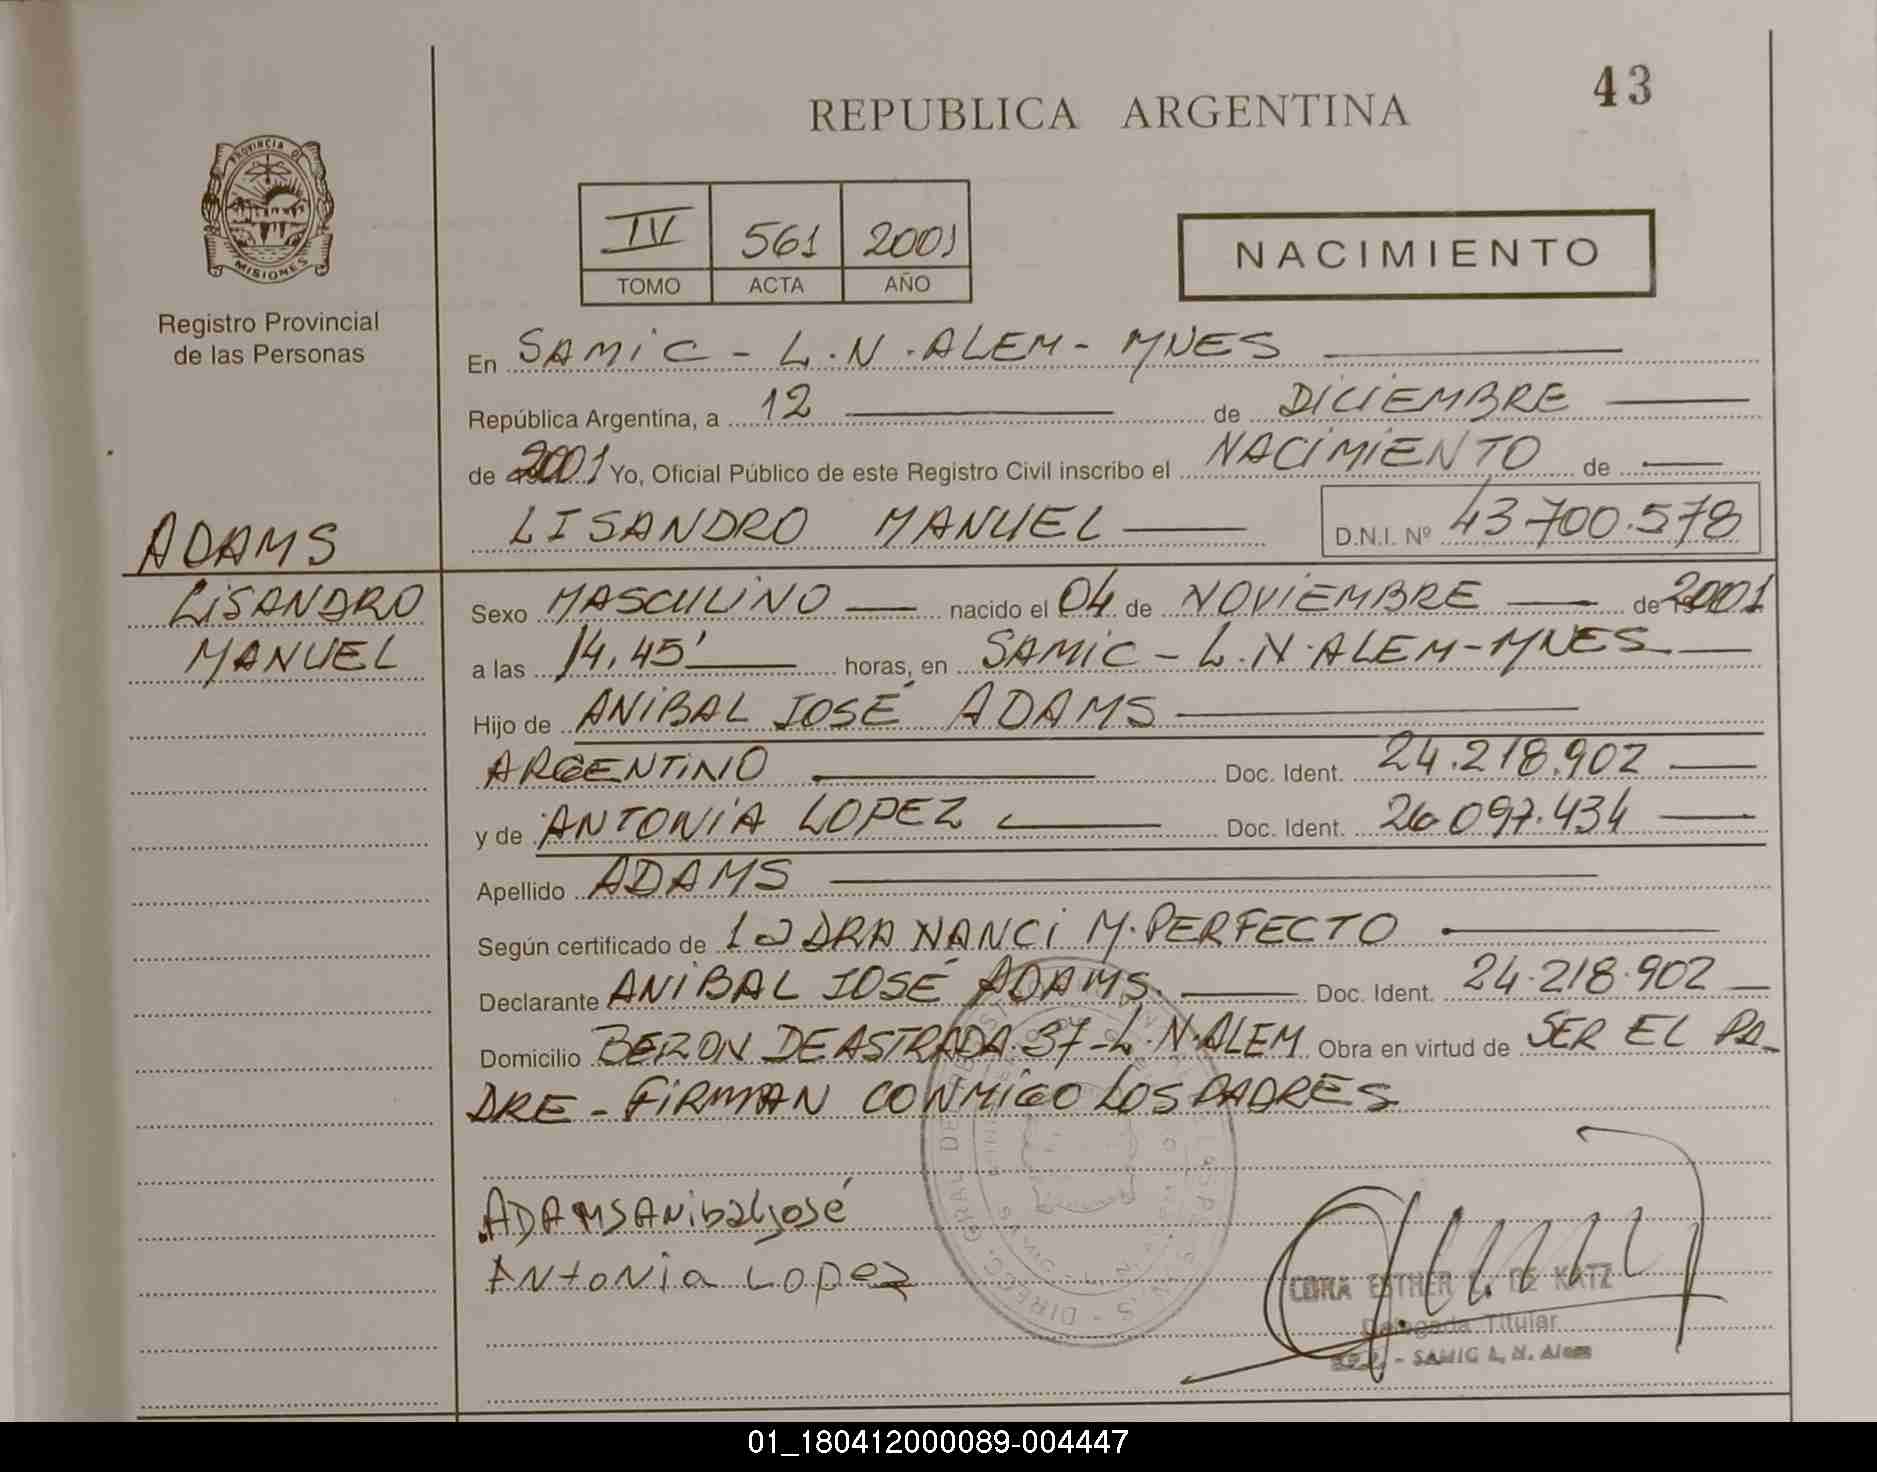 43
REPUBLICA ARGENTINA
PROVINCIA DE
MISIONES
Registro Provincial
de las Personas
IV 561 2001
TOMO ACTA AÑO
NACIMIENTO
En SAMIC - L.N.ALEM - MNES
República Argentina, a 12 de DICIEMBRE
de 2001 Yo, Oficial Público de este Registro Civil inscribo el NACIMIENTO de
LISANDRO MANUEL D.N.I. Nº 43.700.578
ADAMS
LISANDRO
MANUEL
Sexo MASCULINO nacido el 04 de NOVIEMBRE de 2001
a las 14,45' horas, en SAMIC - L.N.ALEM - MNES
Hijo de ANIBAL JOSÉ ADAMS
ARGENTINO Doc. Ident. 24.218.902
y de ANTONIA LOPEZ Doc. Ident. 26.097.434
Apellido ADAMS
Según certificado de DRA NANCI M. PERFECTO
Declarante ANIBAL JOSÉ ADAMS. Doc. Ident. 24.218.902
Domicilio BERON DE ASTRADA 37 - L.N.ALEM Obra en virtud de SER EL PA-
DRE - FIRMAN CONMIGO LOS PADRES
ADAMS ANibal josé
ANtoNia Lopez
ESTHER DE KATZ
Delegada Titular
- SAMIC L. N. Alem
01_180412000089-004447